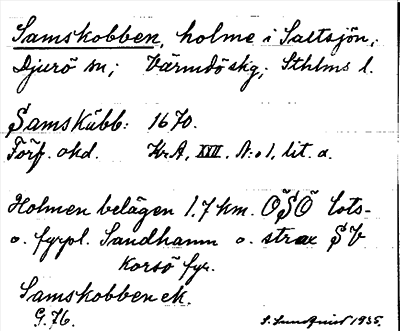 Samskobben, holme i Saltsjön,
Djurö sn; Värmdö skg; Sthlms l.
Samskübb: 1670.
Förf. okd. Kr.A, XVII. N:o 1, lit. a.
Holmen belägen 1,7 km. OSO lots-
o. fyrpl. Sandhamn o. strax SV
Korsö fyr.
Samskobben ek.
G.76. S. Lundquist 1935.